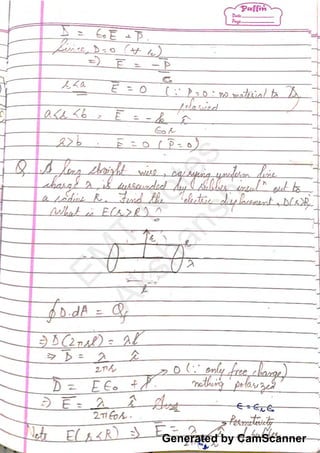 Puffin
Date
Page
D = ε₀E + P.
Since, D=0 (∀ r)
⇒ E = -P/ε₀
r<a E = 0 (∵ P=0 : no material to be polarised
a<r<b, E = -k/ε₀r r̂
r>b E = 0 (P=0)
Q A long straight wire, carrying uniform line
charge λ is surrounded by rubber insulⁿ out to
a radius R. Find the electric displacement, D(r)
What is E(r>R)?
R
λ
∮D.dA = Qf
⇒ D(2πrl) = λl
⇒ D = λ/2πr r̂
0 (∵ only free charge)
D = Eε₀ + P nothing polarized
⇒ E = λ/2πε₀r r̂ ε = ε₀εr
Permittivity
Note E(r<R) ⇒ E = λ r̂
EMT Notes
Generated by CamScanner